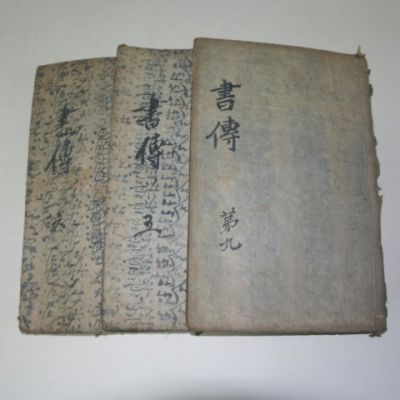 書傳
第九
書傳
五
書傳
六